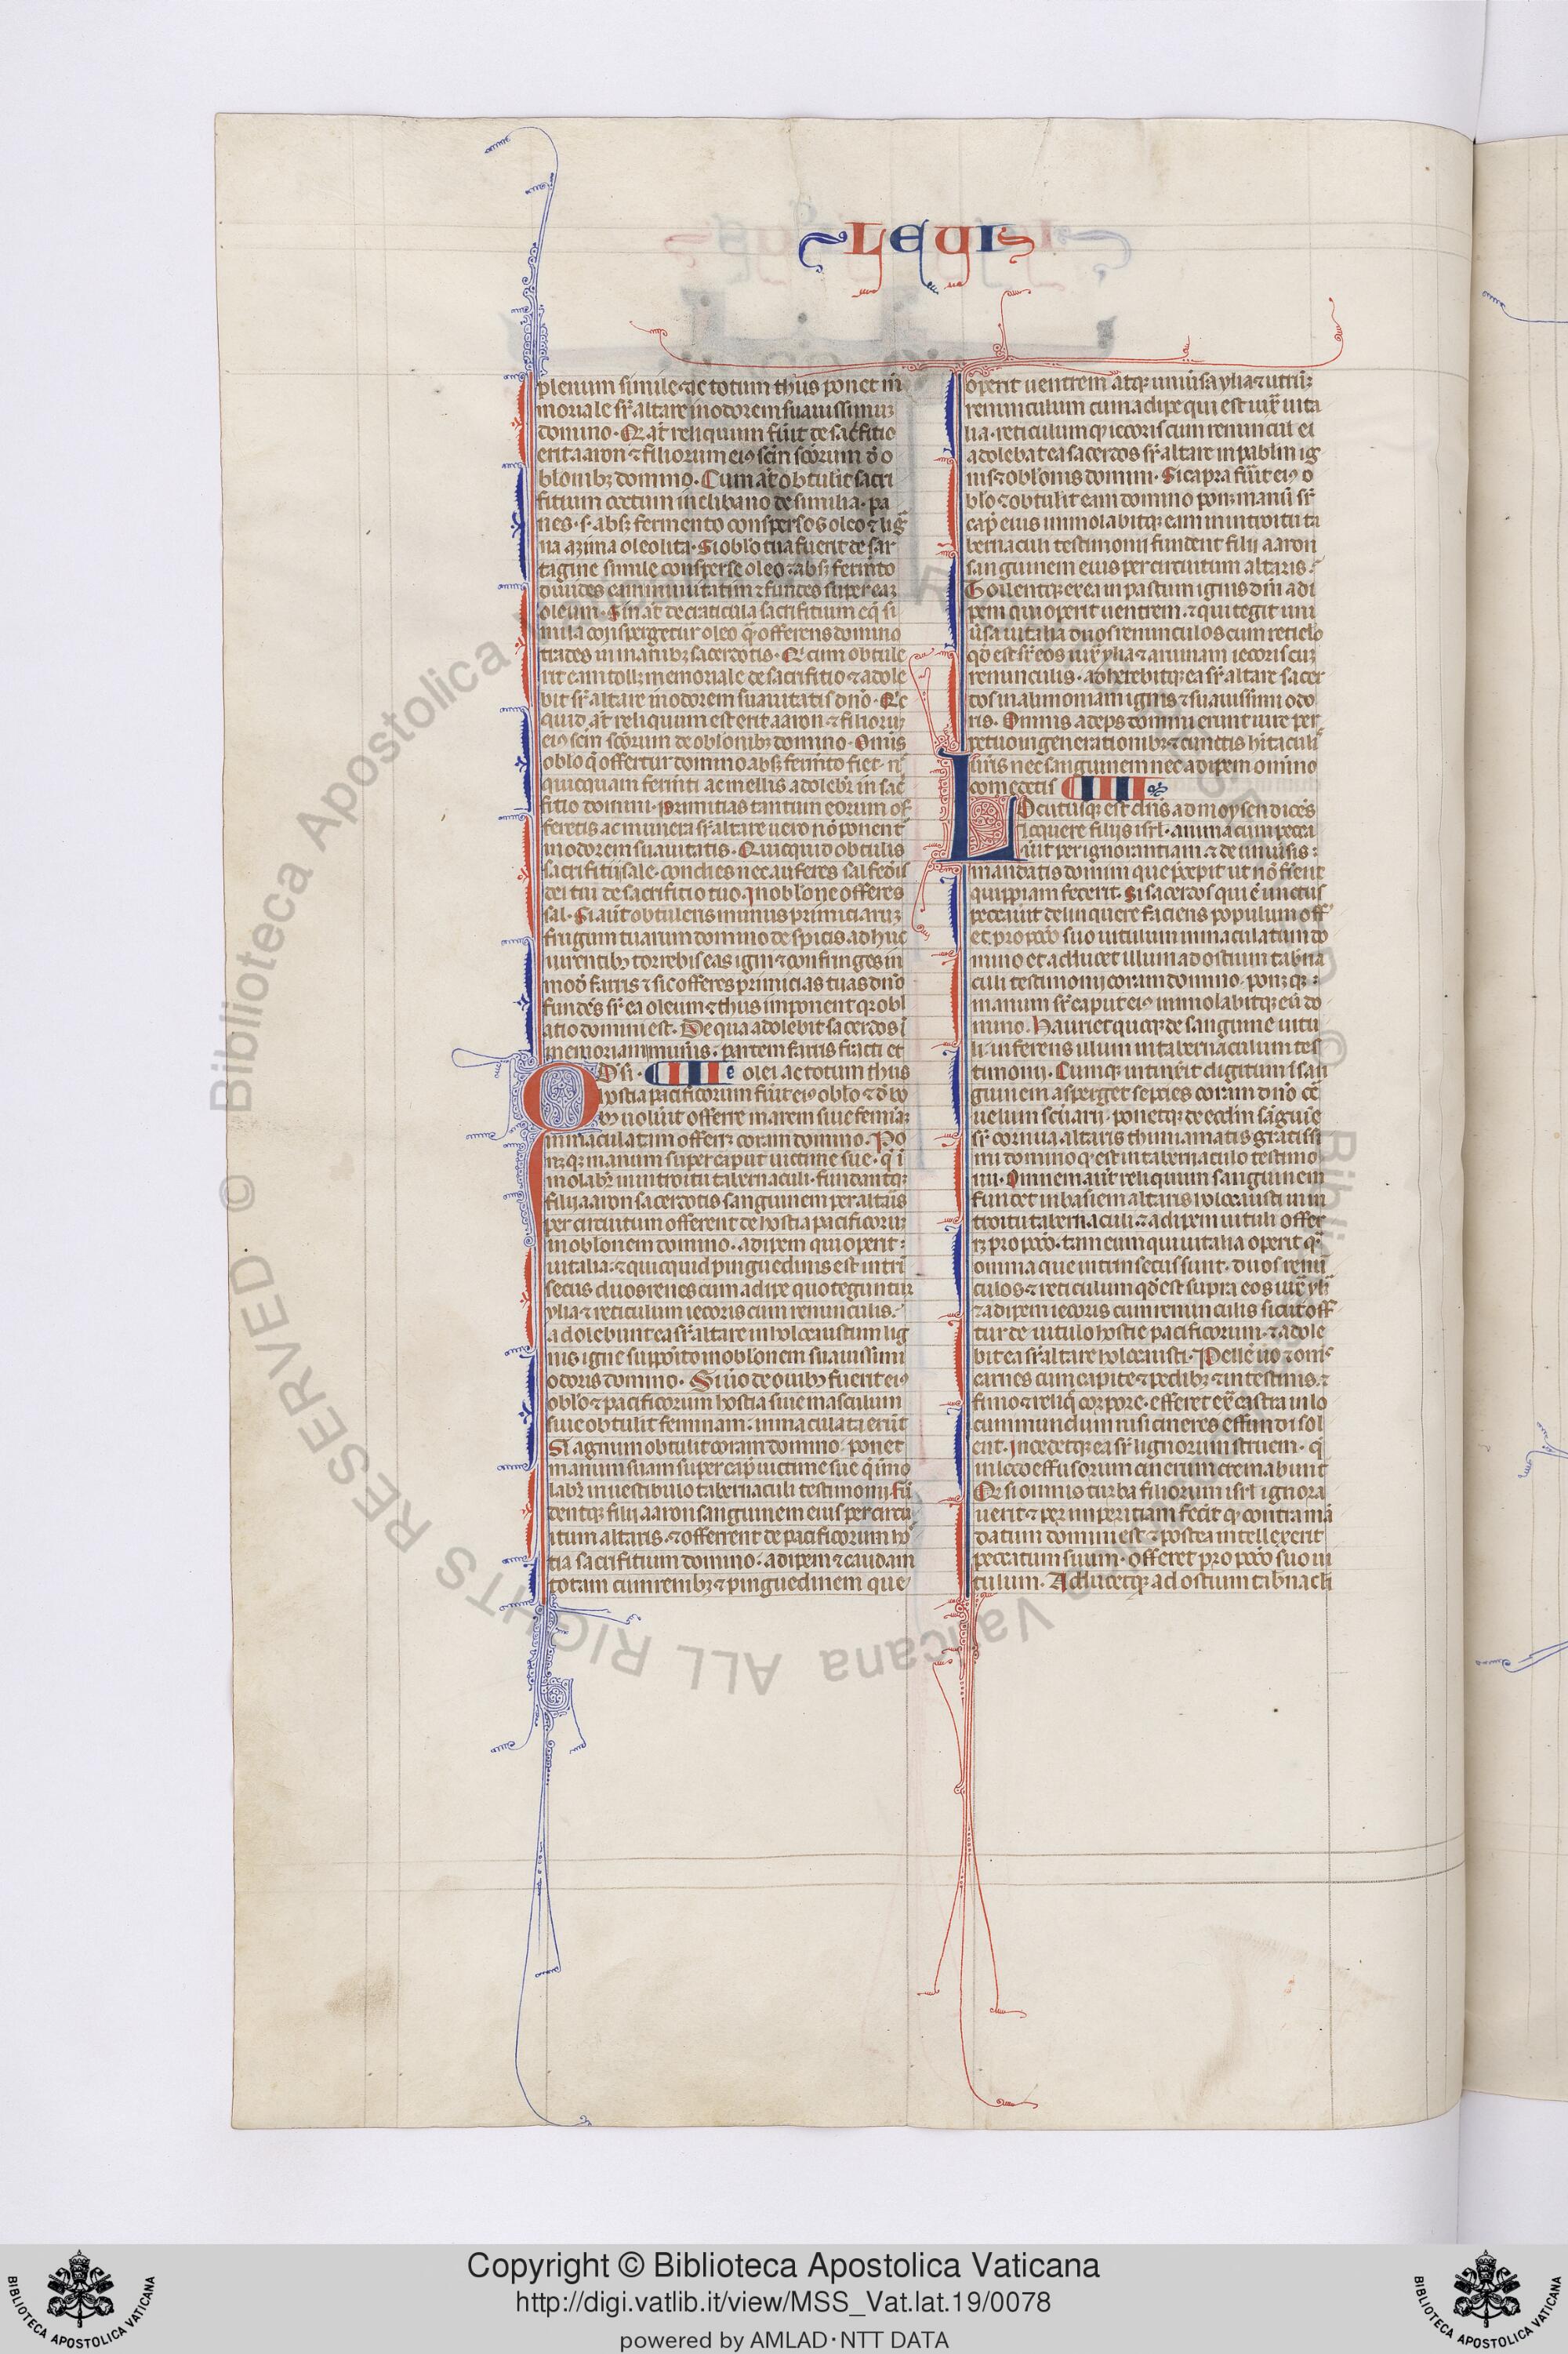 LEUI
plenum simile ⁊ ac totum thus ponet in
moriale sr̄ altare in odorem suauissimuꝫ
domino. Qd̄ aūt reliquum fūit de sac̄fitio
erit aaron ⁊ filiorum eiꝰ scm̄ scōrum d̄ o
blonibꝫ domino. Cum aūt obtulis sacri
fitium coctum in clibano de simila. pa
nes. s. absꝫ fermento conspersos oleo ⁊ laḡ
na azima oleo lita. Si oblo tua fuerit de sar
tagine simile consperse oleo ⁊ absꝫ fermto
diuides eam minutatim ⁊ fundes super eaꝫ
oleum. Sin aūt de craticula sacrifitium eq̄ si
mila conspergetur oleo q̄ offerens domino
trades in manibꝫ sacerdotis. Qui cum obtule
rit eam tollꝫ memoriale de sacrifitio ⁊ adole
bit sr̄ altare in odorem suauitatis dn̄o. Qic
quid aūt reliquum est erit aaron ⁊ filioruꝫ
eiꝰ scm̄ scōrum de oblonibꝫ domino. Omīs
oblo q̄ offertur domino absꝫ fermto fiet. n̄
quicquam fermti ac mellis adolebr̄ in sac̄
fitio domini. primitias tantum eorum of
feretis ac munera sr̄ altare uero nō ponent̄
in odorem suauitatis. Quicquid obtulis
sacrifitii sale condies nec auferes sal fedīs
dei tui de sacrifitio tuo. In oblone offeres
sal. Si aūt obtuleris munus primiciaruꝫ
frugum tuarum domino de spicis adhuc
uirentibꝫ torrebis eas igni ⁊ confringes in
mod̄ farris ⁊ sic offeres primicias tuas dn̄o
fundēs sr̄ ea oleum ⁊ thus imponens qr obl
atio domini est. De qua adolebit sacerdos ī
memoriam mun̄is. partem farris fracti et
olei. ac totum thus
hostia pacificorum fūit eiꝰ oblo ⁊ d̄ bo
bꝫ uolūit offerre marem siue feminaꝫ
immaculatam offerꝫ coram domino. Po
nꝫqꝫ manum super caput uictime sue. q̄ ī
molabr̄ in introitu tabernaculi. fundantqꝫ
filii aaron sacerdotis sanguinem per altāis
per circuitum offerent de hostia pacificoruꝫ
in oblonem domino. adipem qui operit
uitalia. ⁊ quicquid pinguedinis est intrī
secus duos renes cum adipe quo teguntur
ylia ⁊ reticulum iecoris cum renunculis.
adolebuntqꝫ ea sr̄ altare in holocaustum lig
nis igne supposito in oblonem suauissimi
odoris domino. Si uō de ouibꝫ fuerit eiꝰ
oblo ⁊ pacificorum hostia siue masculum
siue obtulit feminam. immaculata erūt
Si agnum obtulit coram domino. ponet
manum suam super cap̄ uictime sue q̄ imo
labr̄ in uestibulo tabernaculi testimonii. fū
dentqꝫ filii aaron sanguinem eius per circu
itum altaris. ⁊ offerrent de pacificorum ho
tia sacrifitium domino. adipem ⁊ caudam
totam cum renibꝫ ⁊ pinguedinem que
operit uentrem atqꝫ uniūsa ylia ⁊ utrūqꝫ
renunculum cum adipe qui est iux̄ uita
lia. reticulumqꝫ iecoris cum renuncul ei
adolebat ea sacerdos sr̄ altare in pablm ig
nis ⁊ oblonis domini. Si capra fūit eiꝰ o
blo ⁊ obtulit eam domino ponꝫ manū sr̄
cap̄ eius immolabitqꝫ eam in introitu ta
bernaculi testimonii fundent filii aaron
sanguinem eius per circuitum altaris.
Tollentqꝫ ex ea in pastum ignis dn̄i adi
pem qui operit uentrem. ⁊ qui tegit uni
ūsa uitalia duos renunculos cum reticlo
qd̄ est sr̄ eos iux̄ ylia ⁊ aruinam iecoris cuꝫ
renunculis. adholebitqꝫ ea sr̄ altare sacer
dos in alimoniam ignis ⁊ suauissimi odo
ris. Omnis adeps domini erunt iure per
petuo in generationibꝫ ⁊ cunctis hitaculī
uīris nec sanguinem nec adipem omnino
comedetis IIII
Locutusqꝫ est dn̄s ad moysen dicēs
loquere filiis isrl. anima cum pecca
uīt per ignorantiam. ⁊ de uniūsis
mandatis domini que p̄cepit ut nō fierēt
quippiam fecerit. Si sacerdos qui ē unctus
peccauit delinquere faciens populum off
et pro pcc̄o suo uitulum immaculatum do
mino et adducet illum ad ostium tabn̄a
culi testimonii coram domino. ponꝫqꝫ
manum sr̄ caput eiꝰ immolabitqꝫ eū do
mino. Hauriet quoqꝫ de sanguine uitu
li. inferens illum in tabernaculum tes
timonii. Cumqꝫ intinx̄it digitum ī san
guinem asperget sepcies coram dn̄o cō
uelum scūarii. ponetqꝫ de eodm sāguīe
sr̄ cornua altaris thimiamatis gratissi
mi domino qd̄ est in tabernaculo testimo
nii. Omnem aūt reliquum sanguinem
fundet in basiem altaris holocausti in in
troitu tabernaculi. ⁊ adipem uituli offer
rꝫ pro pcc̄o. tam eum qui uitalia operit q̄
omnia que intrinsecus sunt. duos renū
culos ⁊ reticulum qd̄ est supra eos iux̄ ylī
⁊ adipem iecoris cum renunculis sicut off
tur de uitulo hostie pacificorum. ⁊ adole
bit ea sr̄ altare holocausti. Pellē uō ⁊ om̄s
carnes cum capite ⁊ pedibꝫ ⁊ intestinis ⁊
fimo ⁊ reliq̄ corpore. efferet ex̄ castra in lo
cum mundum ubi cineres effundi sol
ent. Incedetqꝫ ea sr̄ lignorum struem. q̄
in loco effusorum cinerum cremabunt̄
Qd̄ si omnis turba filiorum isrl ignora
uerit ⁊ per imperitiam fec̄it qd̄ contra mā
datum domini est ⁊ postea intellexerit
peccatum suum. offeret pro pcc̄o suo ui
tulum. Adducetqꝫ ad ostium tabn̄acli
Copyright © Biblioteca Apostolica Vaticana
http://digi.vatlib.it/view/MSS_Vat.lat.19/0078
powered by AMLAD·NTT DATA
BIBLIOTECA APOSTOLICA VATICANA
BIBLIOTECA APOSTOLICA VATICANA
© Biblioteca Apostolica Vaticana ALL RIGHTS RESERVED